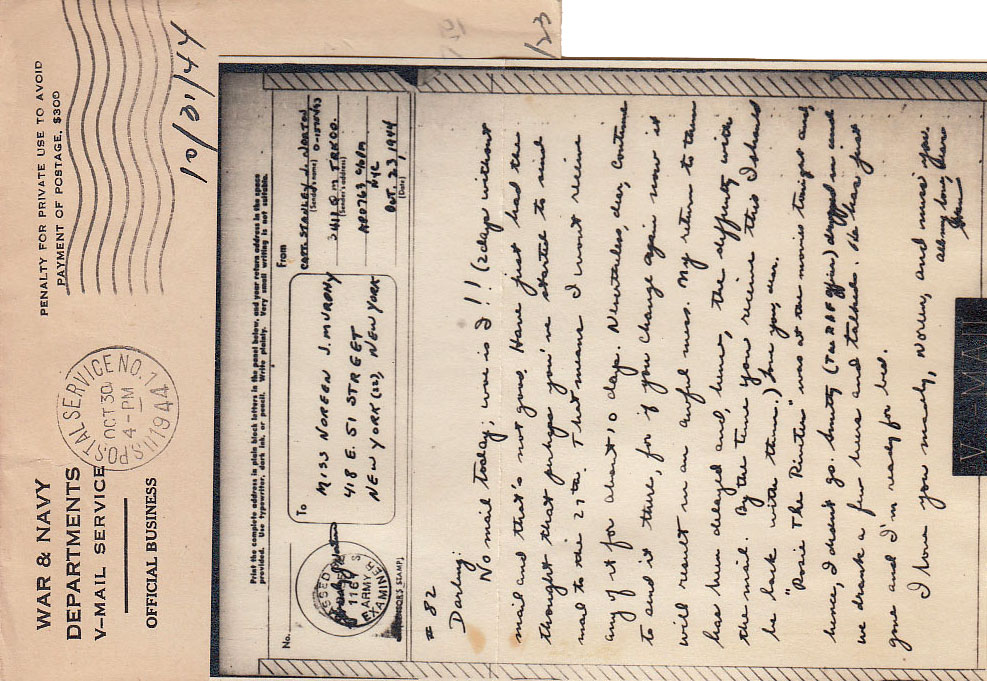 WAR & NAVY
DEPARTMENTS
V-MAIL SERVICE
OFFICIAL BUSINESS
U.S. POSTAL SERVICE NO. 1
OCT 30
4-PM
1944
PENALTY FOR PRIVATE USE TO AVOID
PAYMENT OF POSTAGE, $300
10/31/44
/23
Print the complete address in plain block letters in the panel below, and your return address in the space
provided. Use typewriter, dark ink, or pencil. Write plainly. Very small writing is not suitable.
No.
PASSED BY
1167
ARMY
EXAMINER
(CENSOR'S STAMP)
To
MISS NOREEN J. MURPHY
418 E. 51 STREET
NEW YORK (22), NEW YORK
From
CAPT. STANLEY J. NORTON
(Sender's name)
3412 Q.M. TRK CO.
(Sender's address)
APO 763, c/o PM
NYC
OCT. 23, 1944
(Date)
# 82
Darling:
No mail today; woe is I!!! (2 days without
mail and that's not good. Have just had the
thought that perhaps you've started to send
mail to the 27th. That means I won't receive
any of it for about 10 days. Nevertheless, dear, continue
to send it there, for if you change again now it
will result in an awful mess. My return to them
has been delayed and, hence, the difficulty with
the mail. By the time you receive this I should
be back with them.) Love you, hon.
"Rosie The Riveter" was at the movies tonight and,
hence, I didn't go. Smitty dropped in and
we drank a few beers and talked. He has just
gone and I'm ready for bed.
I love you madly, Noreen, and miss you.
All my love, dear
Stan
V-MAIL